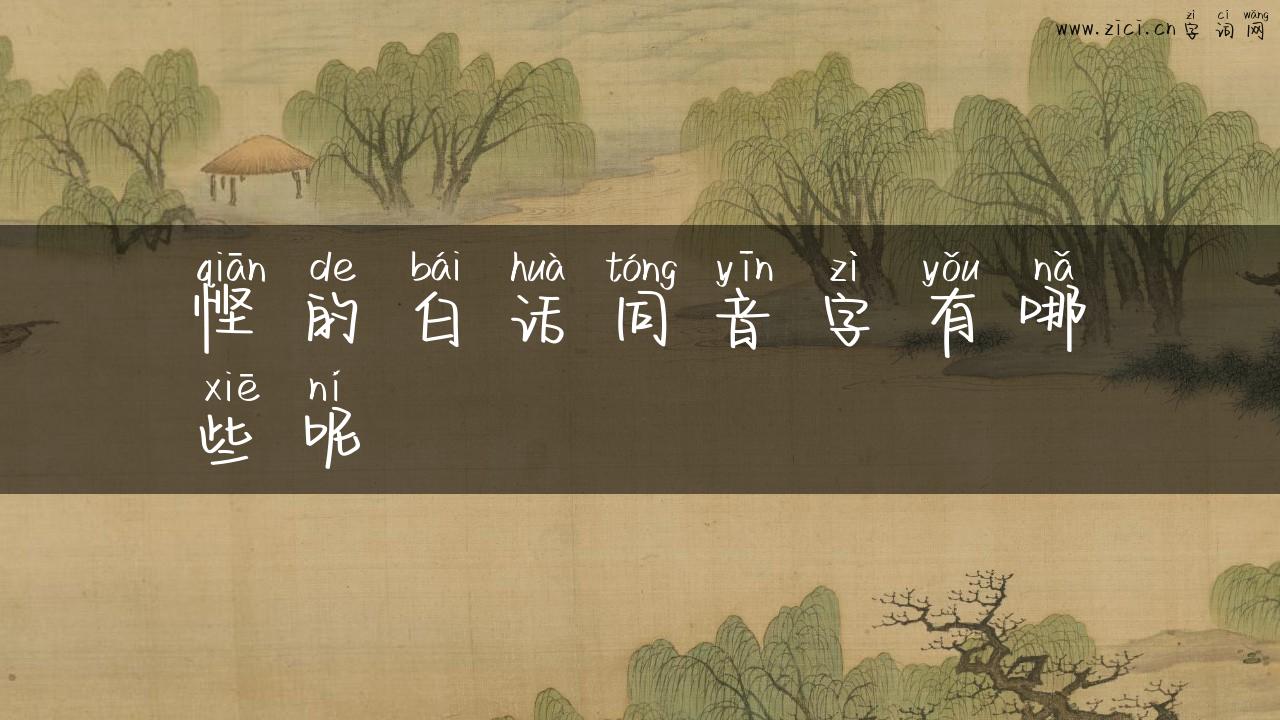 zì cí wǎng
www.zici.cn 字词网
qiān de bái huà tóng yīn zì yǒu nǎ
悭的白话同音字有哪
xiē ní
些呢